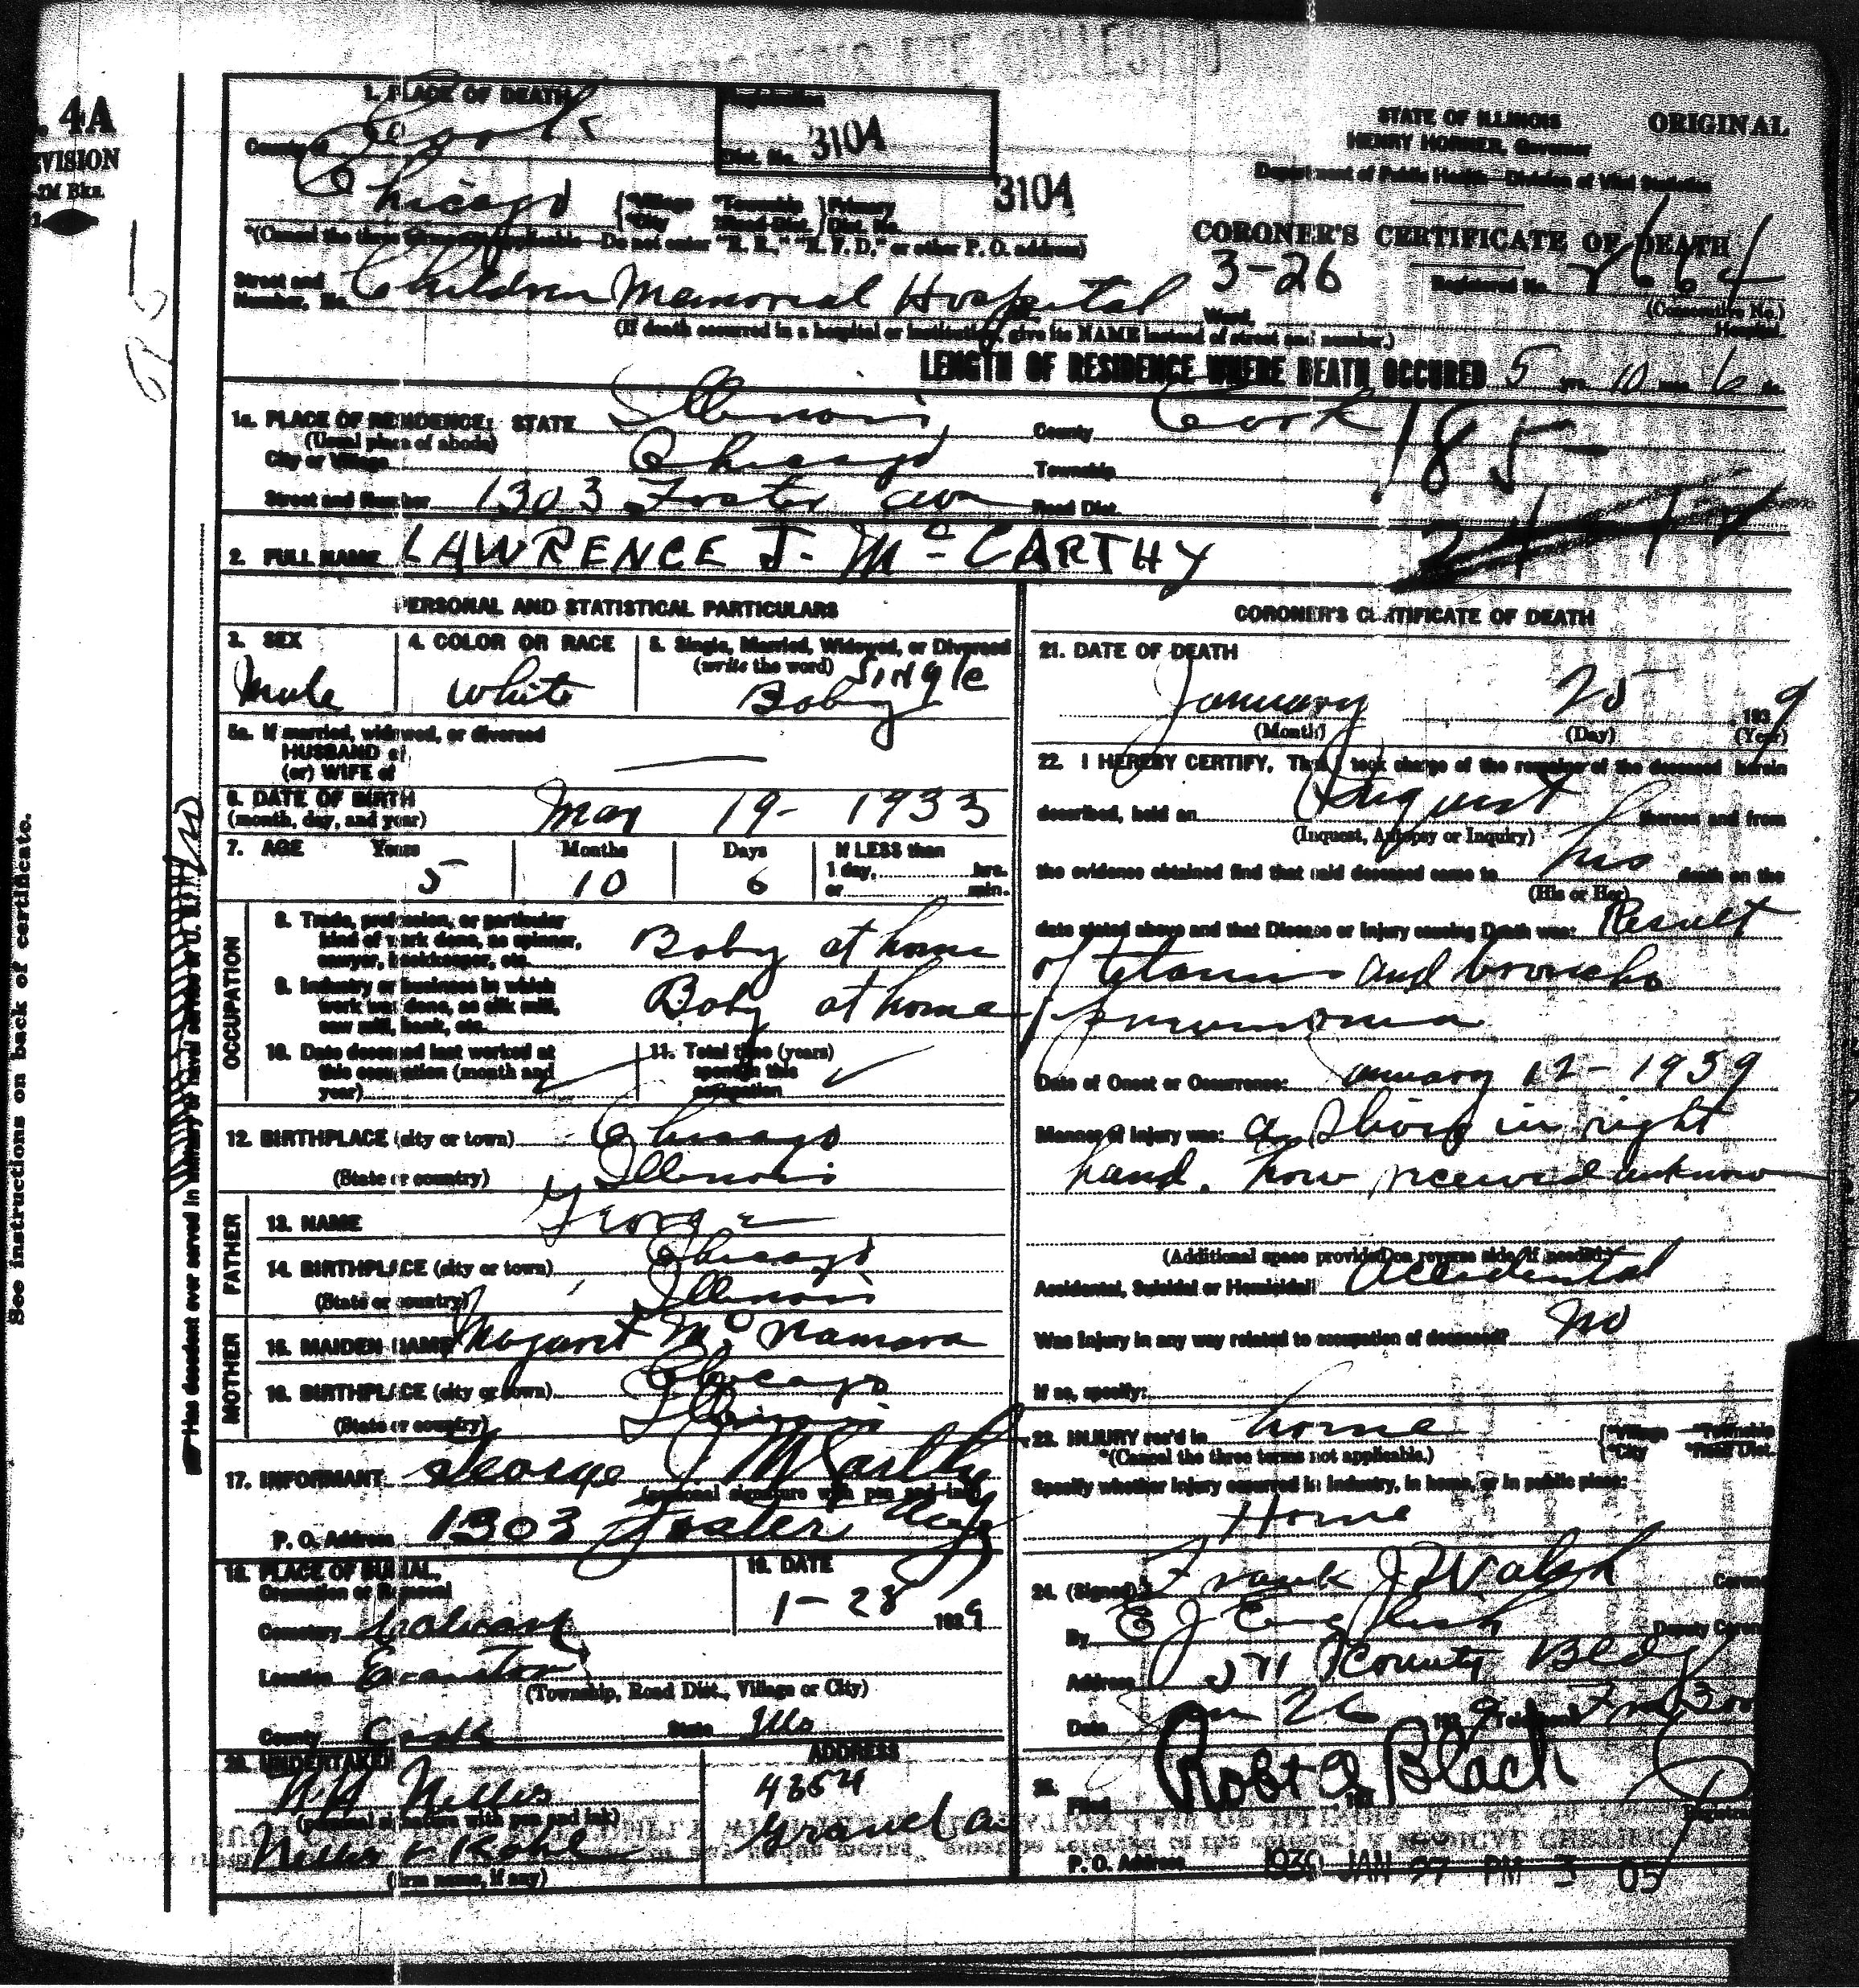 4A
EVISION
2M Bks.
1. PLACE OF DEATH
Registration
Dist. No. 3104
STATE OF ILLINOIS ORIGINAL
HENRY HORNER, Governor
Department of Public Health—Division of Vital Statistics
County of Cook
3104
Chicago
{*Village *Township } Primary
*City *Road Dist. } Dist. No.
*(Cancel the three terms not applicable—Do not enter "R. R.," "R. F. D.," or other P. O. address)
CORONER'S CERTIFICATE OF DEATH
3-26
Registered No.
(Consecutive No.)
Street and
Number, No. Children Memorial Hospital Ward, Hospital.
(If death occurred in a hospital or institution, give its NAME instead of street and number.)
LENGTH OF RESIDENCE WHERE DEATH OCCURED 5 yrs. 10 mos. 6 ds.
1a. PLACE OF RESIDENCE: STATE Illinois County Cook
185
(Usual place of abode)
City or Village Chicago Township
Street and Number 1303 Foster ave Road Dist.
2. FULL NAME LAWRENCE J. Mc CARTHY
PERSONAL AND STATISTICAL PARTICULARS
3. SEX
Male
4. COLOR OR RACE
White
5. Single, Married, Widowed, or Divorced
(write the word) Single
Boby
5a. If married, widowed, or divorced
HUSBAND of
(or) WIFE of —
6. DATE OF BIRTH
(month, day, and year) Mar 19- 1933
7. AGE Years Months Days If LESS than
1 day, hrs.
or min.
5 10 6
OCCUPATION
8. Trade, profession, or particular
kind of work done, as spinner,
sawyer, bookkeeper, etc. Boby at home
9. Industry or business in which
work was done, as silk mill,
saw mill, bank, etc. Boby at home
10. Date deceased last worked at
this occupation (month and
year)
11. Total time (years)
spent in this
occupation
12. BIRTHPLACE (city or town) Chicago
(State or country) Illinois
FATHER
13. NAME George
14. BIRTHPLACE (city or town) Chicago
(State or country) Illinois
MOTHER
15. MAIDEN NAME Magaret Mc Namara
16. BIRTHPLACE (city or town) Chicago
(State or country) Illinois
17. INFORMANT George J. McCarthy
(personal signature with pen and ink)
P. O. Address 1303 Foster Ave
18. PLACE OF BURIAL,
Cremation or Removal
Cemetery Calvary
Location Evanston
(Township, Road Dist., Village or City)
County Cook State Ills
19. DATE
1-28 1939
20. UNDERTAKER
(personal signature with pen and ink)
(firm name, if any)
ADDRESS
4364
CORONER'S CERTIFICATE OF DEATH
21. DATE OF DEATH
January 25 1939
(Month) (Day) (Year)
22. I HEREBY CERTIFY, That I took charge of the remains of the deceased herein
described, held an Inquest thereon and from
(Inquest, Autopsy or Inquiry)
the evidence obtained find that said deceased came to his death on the
(His or Her)
date stated above and that Disease or Injury causing Death was: Result
of tetanus and broncho
pneumonia
Date of Onset or Occurrence: January 12- 1939
Manner of Injury was: a sliver in right
hand. how received unknow
(Additional space provided on reverse side, if needed)
Accidental, Suicidal or Homicidal: Accidental
Was Injury in any way related to occupation of deceased? No
If so, specify:
23. INJURY rec'd in home {*Village *Township
*City *Road Dist.
*(Cancel the three terms not applicable.)
Specify whether injury occurred in industry, in home, or in public place:
Home
24. (Signed) Frank J Walsh Coroner
By E J English Deputy Coroner
Address 511 County Bldg
Date Jan 26 1939 Telephone
25.
Filed Robt A Black
P. O. Address 1939 JAN 27 PM 3 05
See instructions on back of certificate.
Has decedent ever served in military or naval service of U. S. No